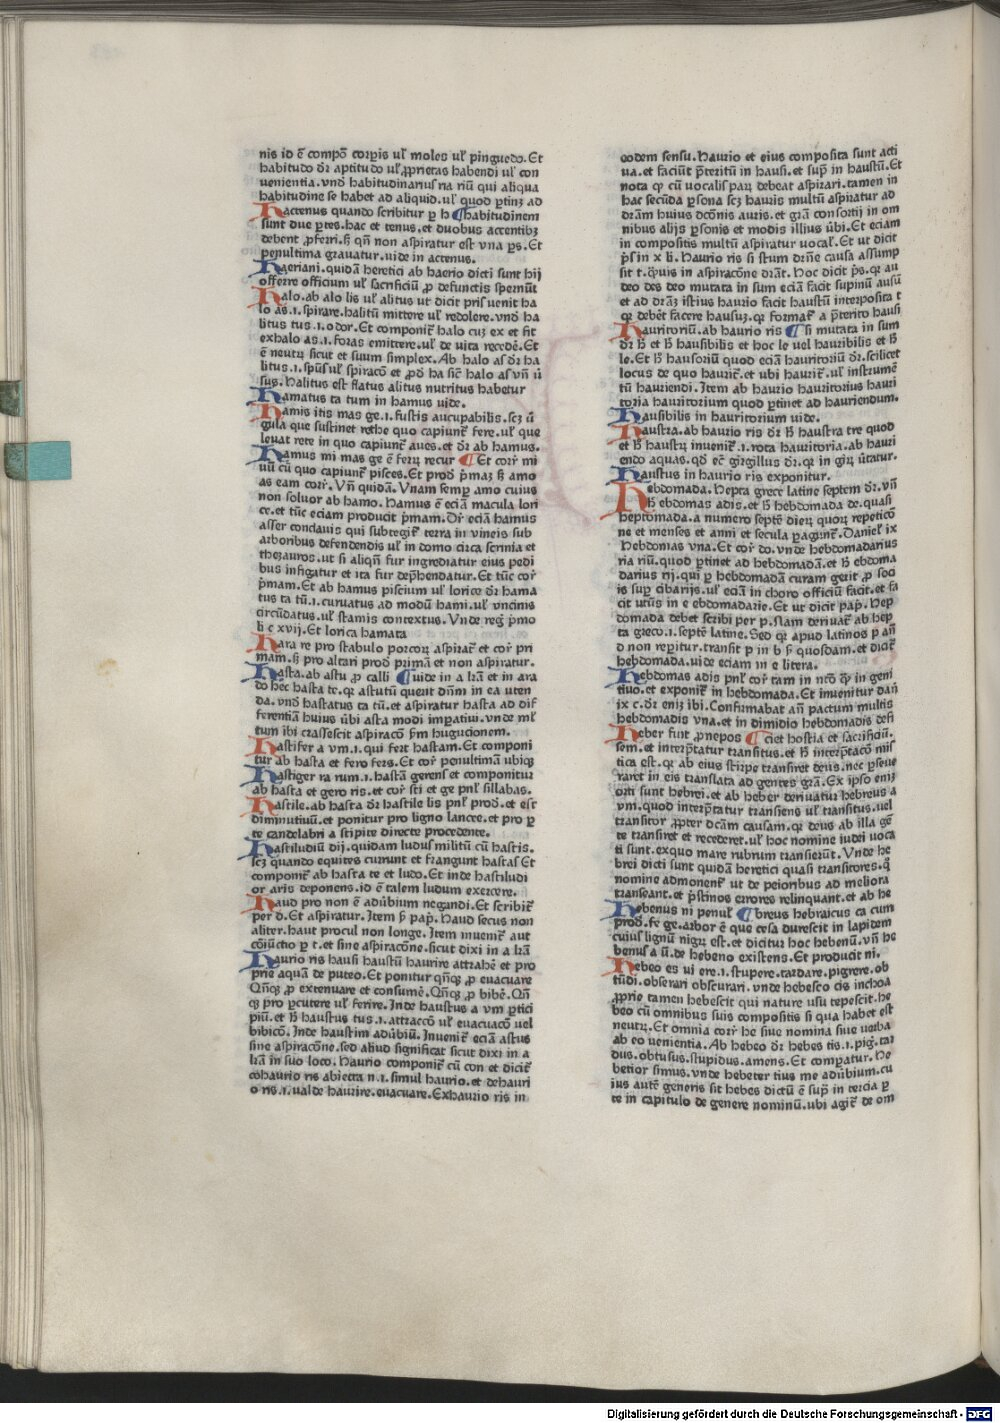 nis id ē compō corꝑis ul̓ moles ul̓ pinguedo. Et
habitudo dr̄ aptitudo ul̓ ꝓprietas habendi ul̓ con
uenientia. vnd̓ habitudinarius ria riū qui aliqua
habitudine se habet ad aliquid. ul̓ quod ꝑtinꝫ ad
Hactenus quando scribitur ꝑ h ¶habitudinem
sunt due ꝑtes. hac et tenus. et duobus accentibꝫ
debent ꝓferri. sꝫ qn̄ non aspiratur est vna ꝑs. Et
penultima grauatur. uide in actenus.
Haeriani. quidā heretici ab haerio dicti sunt hij
offerre officium ul̓ sacrificiū ꝓ defunctis spernūt
Halo. ab alo lis ul̓ alitus ut dicit prisꝰ uenit ha
lo as .i. spirare. halitū mittere ul̓ redolere. vnd̓ ha
litus tus .i. odor. Et componit̄ halo cuꝫ ex et fit
exhalo as .i. foras emittere. ul̓ de vita recedē. Et
ē neutꝝ sicut et suum simplex. Ab halo as dr̄ ha
litus .i. spūs ul̓ spiracō et ꝓd̓ ha sic̄ halo as vn̄ ū
sus. Halitus est flatus alitus nutritus habetur
Hamatus ta tum in hamus uide.
Hamis itis mas ge .i. fustis aucupabilis. scꝫ ū
gula que sustinet rethe quo capiunt̄ fere. ul̓ que
leuat rete in quo capiunt̄ aues. et dr̄ ab hamus.
Hamus mi mas ge ē ferꝝ recur ¶Et corr̄ mi
uū cū quo capiunt̄ pisces. Et prod̓ p̄maꝫ sꝫ amo
as eam corr̄. Vn̄ quidā. Vnam semꝑ amo cuius
non soluor ab hamo. Hamus ē eciā macula lori
ce. et tūc eciam producit p̄mam. Dr̄ eciā hamus
asser conclauis qui subtegit̄ terra in vineis sub
arboribus defendendis ul̓ in domo circa scrinia et
thezauros. ut si aliqn̄ fur ingrediatur eius pedi
bus infigatur et ita fur dep̄hendatur. Et tūc corr̄
p̄mam. Et ab hamus piscium ul̓ lorice dr̄ hama
tus ta tū .i. curuatus ad modū hami. ul̓ vncinis
circūdatus. ul̓ stamis contextus. Vnde reg̣ p̄mo
li c xvij. Et lorica hamata
Hara re pro stabulo porcoꝝ aspirat̄ et corr̄ pri
mam. sꝫ pro altari prod̓ primā et non aspiratur.
Hasta. ab astu ꝓ calli ¶uide in a lr̄a et in ara
do hec̄ hasta te. qꝛ astutū querit dn̄m in ea uten
da. vnd̓ hastatus ta tū. et aspiratur hasta ad dif
ferentiā huius ūbi asta modi imꝑatiui. vnde ml̓
tum ibi crassescit aspiracō ẜm hugucionem.
Hastifer a vm .i. qui fert hastam. Et componi
tur ab hasta et fero fers. Et corr̄ penultimā ubiqꝫ
Hastiger ra rum .i. hastā gerens et componitur
ab hasta et gero ris. et corr̄ sti et ge pnl̓ sillabas.
Hastile. ab hasta dr̄ hastile lis pnl̓ prod̓. et est
diminutiuū. et ponitur pro ligno lancee. et pro ꝑ
te candelabri a stipite directe procedente.
Hastiludiū dij. quidam ludus militū cū hastis.
scꝫ quando equites currunt et frangunt hastas Et
componit̄ ab hasta te et ludo. Et inde hastiludi
or aris deponens. id ē talem ludum exercere.
Haud pro non ē adūbium negandi. Et scribit̄
per d. Et aspiratur. Item ẜ pap̄. Haud secus non
aliter. haut procul non longe. Item inuenit̄ aut
cōiūctio ꝑ t. et sine aspiracōne. sicut dixi in a lr̄a
Haurio ris hausi haustū haurire attrahē et pro
prie aquā de puteo. Et ponitur qn̄qꝫ ꝓ euacuare
Qn̄qꝫ ꝓ extenuare et consumē. Qn̄qꝫ ꝓ bibē. Qn̄
qꝫ pro ꝑcutere ul̓ ferire. Inde haustus a vm ꝑtici
piū. et ħ haustus tus .i. attraccō ul̓ euacuacō uel
bibicō. Inde haustim adūbiū. Inuenit̄ eciā astus
sine aspiracōne. sed aliud significat sicut dixi in a
lr̄a in suo loco. Haurio componit̄ cū con et dicit̄
cohaurio ris abiecta n .i. simul haurio. et dehauri
o ris .i. ualde haurire. euacuare. Exhaurio ris in
eodem sensu. Haurio et eius composita sunt acti
ua. et faciūt p̄teritū in hausi. et sup̄ in haustū. Et
nota qꝙ cū vocalis parꝫ debeat aspirari. tamen in
hac secūda ꝑsona scꝫ hauris multū aspiratur ad
dr̄am huius dcōnis auris. et grā consortij in om
nibus alijs ꝑsonis et modis illius ūbi. Et eciam
in compositis multū aspiratur uocal̓. Et ut dicit
p̄s in x li. Haurio ris si stum drn̄e causa assump
sit t. qͣuis in aspiracōne dr̄at. Hoc dicit p̄s. qꝛ au
deo des deo mutata in sum eciā facit supinū ausū
et ad dr̄aꝫ istius haurio facit haustū interposita t
qꝛ debēt facere hausuꝫ. qꝛ format̄ a p̄terito hausi
Hauritoriū. ab haurio ris ¶si mutata in sum
dr̄ ħ et ħ hausibilis et hoc le vel hauribilis et ħ
le. Et ħ hausoriū quod eciā hauritoriū dr̄. scilicet
locus de quo haurit̄. et ubi haurit̄. ul̓ instrumē
tū hauriendi. Item ab haurio hauritorius hauri
toria hauritorium quod ꝑtinet ad hauriendum.
Hausibilis in hauritorium uide.
Haustra. ab haurio ris dr̄ ħ haustra tre quod
et ħ haustꝝ inuenit̄ .i. rota hauritoria. ab hauri
endo aquas. qd̓ ec̄ girgillus dr̄. qꝛ in girꝫ ūtatur.
Haustus in haurio ris exponitur.
Hebdomada. Hepta grece latine septem dr̄. vn̄
ħ ebdomas adis. et ħ hebdomada de. quasi
heptomada. a numero septē dieꝝ quoꝝ repeticō
ne et menses et anni et secula ꝑagunt̄. Daniel̓ ix
Hebdomas vna. Et corr̄ do. vnde hebdomadarius
ria riū. quod ꝑtinet ad hebdomadā. et ħ ebdoma
darius rij. qui ꝑ hebdomadā curam gerit ꝓ soci
is suꝑ cibarijs. ul̓ eciā in choro officiū facit. et fa
cit utūs in e ebdomadarie. Et ut dicit pap̄. Hep
domada debet scribi per p. Nam deriuat̄ ab hep
ta greco .i. septē latine. Sed qꝛ apud latinos p an̄
d non reꝑitur. transit p in b ẜ quosdam. et dicit̄
hebdomada. uide eciam in e litera.
Hebdomas adis pnl̓ corr̄ tam in ntō qꝫ in geni
tiuo. et exponit̄ in hebdomada. Et inuenitur dan̄
ix c. dr̄ eniꝫ ibi. Confirmabat an̄ pactum multis
hebdomadis vna. et in dimidio hebdomadis defi
Heber fuit ꝓnepos ¶ciet hostia et sacrificiū.
sem. et interp̄tatur transitus. et ħ interp̄tacō mis
tica est. qꝛ ab eius stirpe transiret deus. nec ꝑseue
raret in eis translata ad gentes grā. Ex ipso eniꝫ
orti sunt hebrei. et ab heber deriuatur hebreus a
vm. quod interp̄tatur transiens ul̓ transitus. uel
transitor ꝓpter dcām causam. qꝛ deus ab illa gē
te transiret et recederet. ul̓ hoc nomine iudei uoca
ti sunt. exquo mare rubrum transierūt. Vnde he
brei dicti sunt quidā heretici quasi transitores. qͣ
nomine admonent̄ ut de peioribus ad meliora
transeant. et p̄stinos errores relinquant. et ab he
Hebenus ni penul̓ ¶breus hebraicus ca cum
prod̓. fe ge. arbor ē que cesa durescit in lapidem
cuius lignū nigꝝ est. et dicitur hoc hebenū. vn̄ he
benus a ū. de hebeno existens. Et producit ni.
Hebeo es ui ere .i. stupere. tardare. pigrere. ob
tūdi. obserari obscurari. vnde hebesco cis inchoa
ꝓprie tamen hebescit qui nature usu tepescit. he
beo cū omnibus suis compositis si qua habet est
neutꝝ. Et omnia corr̄ he siue nomina siue uerba
ab eo uenientia. Ab hebeo dr̄ hebes tis .i. pig̣. tar
dus. obtusus. stupidus. amens. Et comꝑatur. He
betior simus. vnde hebeter tius me adūbium. cu
ius autē generis sit hebes dictū ē sup̄ in tercia ꝑ
te in capitulo de genere nominū. ubi agit̄ de om
Digitalisierung gefördert durch die Deutsche Forschungsgemeinschaft - DFG